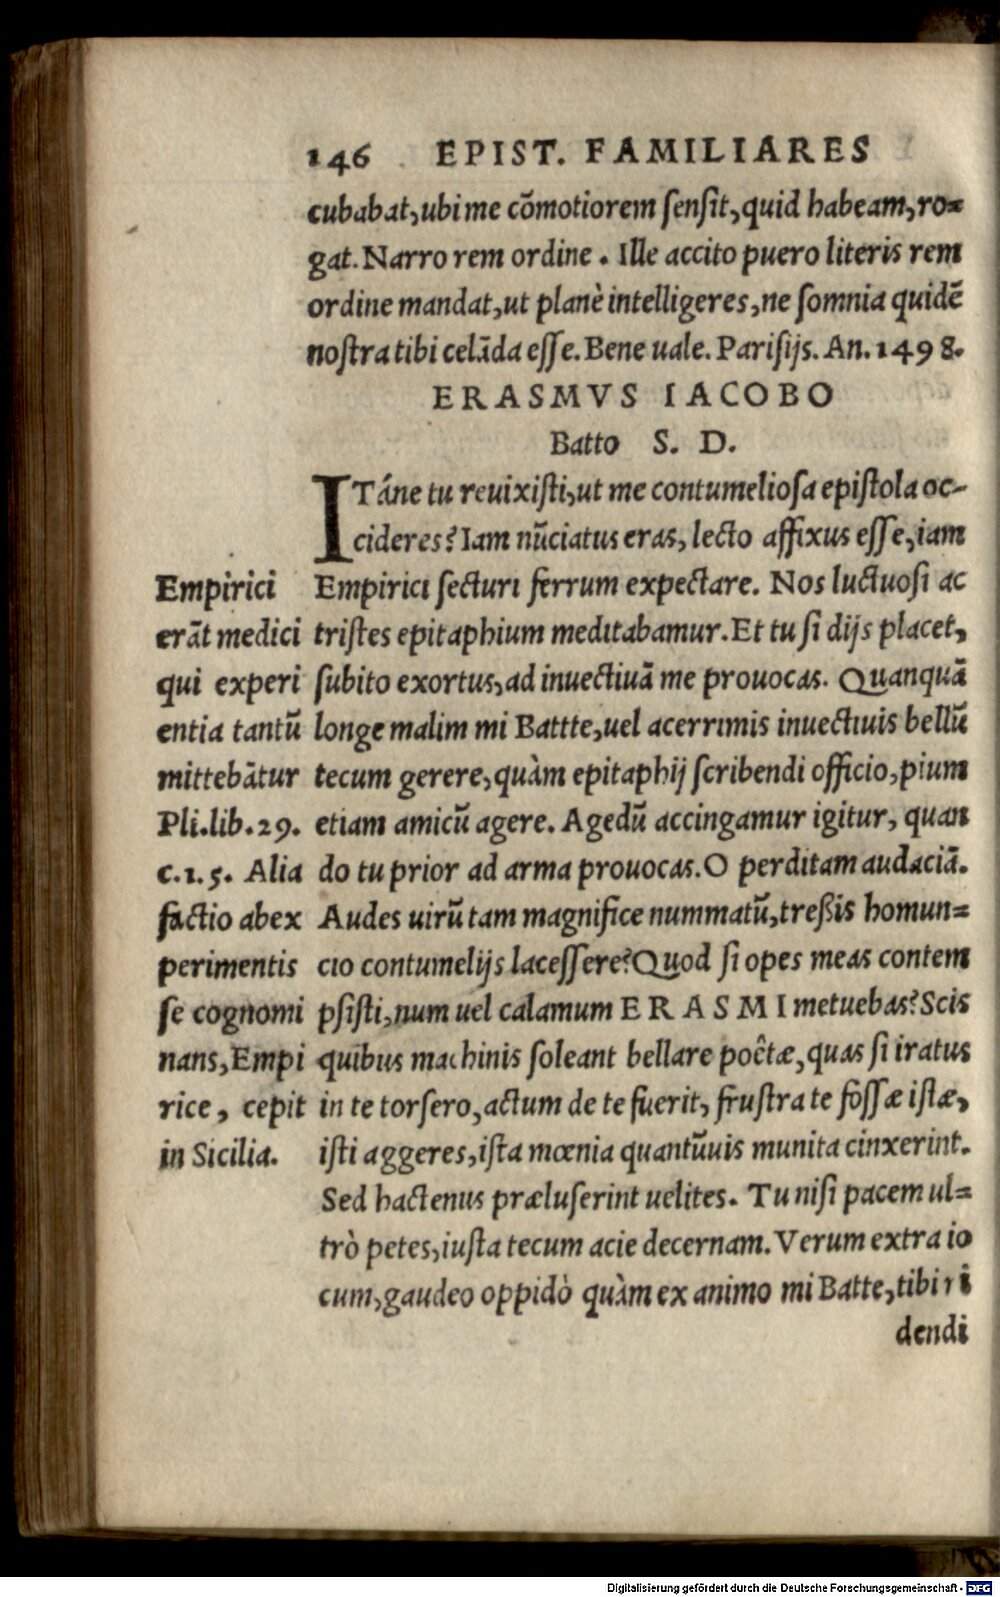 146 EPIST. FAMILIARES
cubabat, ubi me cõmotiorem ſenſit, quid habeam, ro=
gat. Narro rem ordine. Ille accito puero literis rem
ordine mandat, ut planè intelligeres, ne ſomnia quidẽ
noſtra tibi celãda eſſe. Bene uale. Pariſijs. An. 1498.
ERASMVS IACOBO
Batto S. D.
ITáne tu reuixiſti, ut me contumelioſa epiſtola oc-
cideres? Iam nũciatus eras, lecto affixus eſſe, iam
Empirici ſecturi ferrum expectare. Nos luctuoſi ac
triſtes epitaphium meditabamur. Et tu ſi dijs placet,
ſubito exortus, ad inuectiuã me prouocas. Quanquã
longe malim mi Battte, uel acerrimis inuectiuis bellũ
tecum gerere, quàm epitaphij ſcribendi officio, pium
etiam amicũ agere. Agedũ accingamur igitur, quan
do tu prior ad arma prouocas. O perditam audaciã.
Audes uirũ tam magnifice nummatũ, treßis homun=
cio contumelijs laceſſere? Quod ſi opes meas contem
pſiſti, num uel calamum ERASMI metuebas? Scis
quibus machinis ſoleant bellare poêtæ, quas ſi iratus
in te torſero, actum de te fuerit, fruſtra te foſſæ iſtæ,
iſti aggeres, iſta mœnia quantũuis munita cinxerint.
Sed hactenus præluſerint uelites. Tu niſi pacem ul=
trò petes, iuſta tecum acie decernam. Verum extra io
cum, gaudeo oppidò quàm ex animo mi Batte, tibi ri
dendi
Empirici
erãt medici
qui experi
entia tantũ
mittebãtur
Pli. lib. 29.
c. 1. 5. Alia
factio ab ex
perimentis
ſe cognomi
nans, Empi
rice, cepit
in Sicilia.
Digitalisierung gefördert durch die Deutsche Forschungsgemeinschaft - DFG